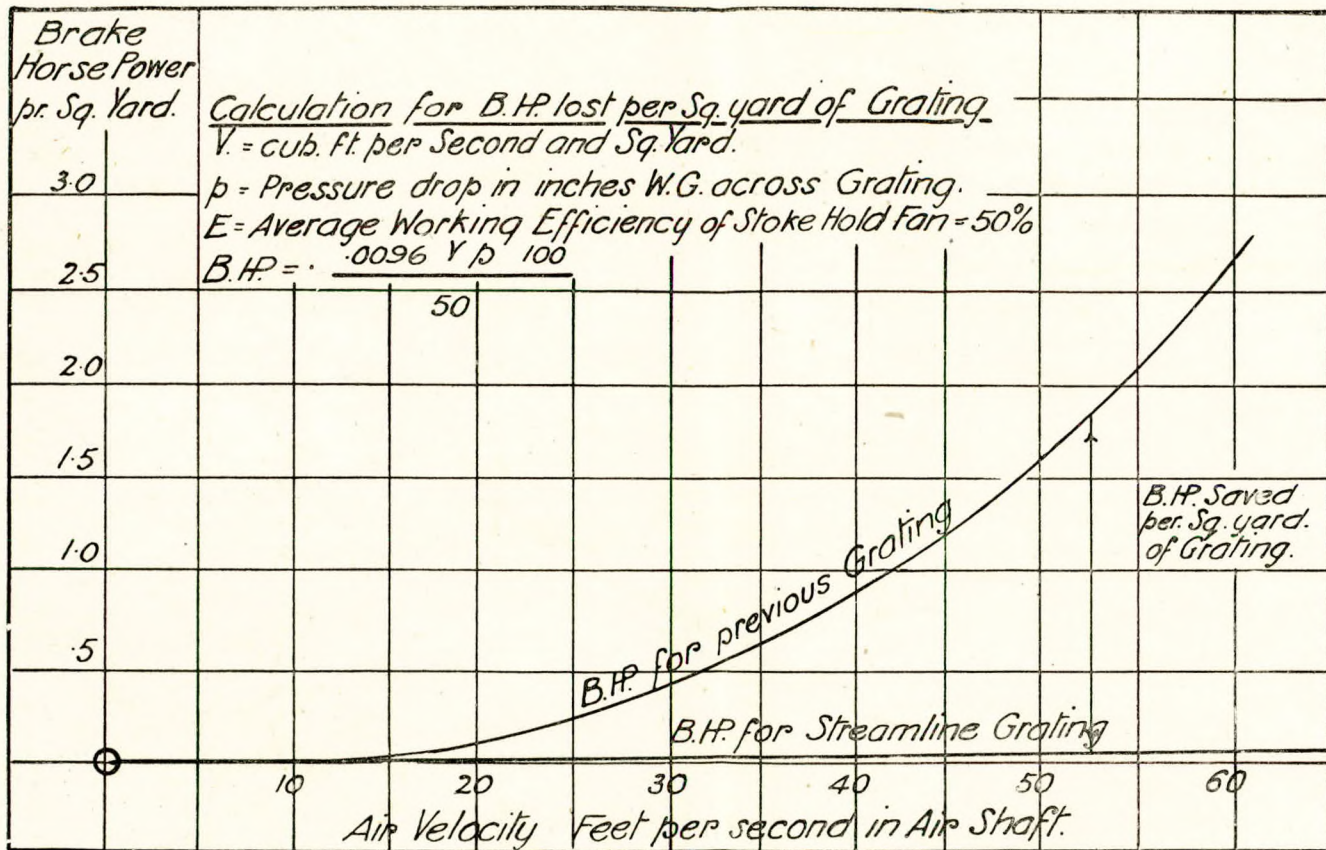 Brake
Horse Power
pr. Sq. Yard.
Calculation for B.H.P. lost per Sq. yard of Grating
V. = cub. ft. per Second and Sq. Yard.
p = Pressure drop in inches W.G. across Grating.
E = Average Working Efficiency of Stoke Hold Fan = 50%
B.H.P. = .0096 V p 100
50
3.0
2.5
2.0
1.5
1.0
.5
B.H.P. Saved
per. Sq. yard.
of Grating.
B.H.P. for previous Grating
B.H.P. for Streamline Grating
10 20 30 40 50 60
Air Velocity Feet per second in Air Shaft.